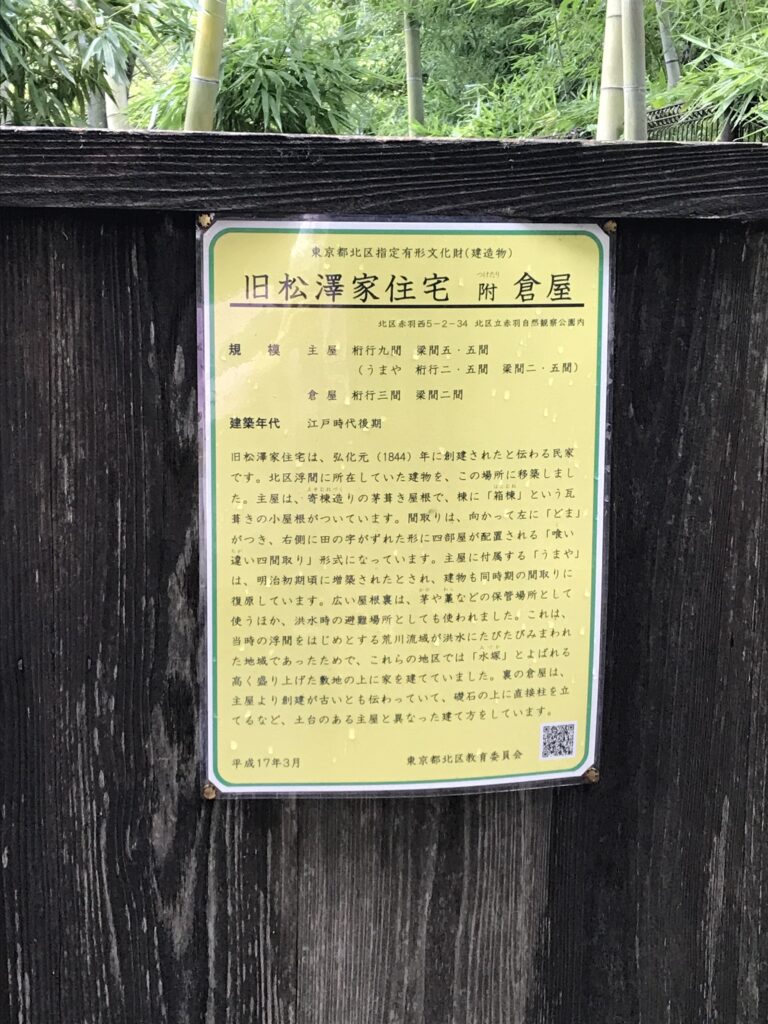 東京都北区指定有形文化財(建造物)
旧松澤家住宅 附 倉屋
つけたり
北区赤羽西5−2−34 北区立赤羽自然観察公園内
規 模 主屋 桁行九間 梁間五・五間
(うまや 桁行二・五間 梁間二・五間)
倉屋 桁行三間 梁間二間
建築年代 江戸時代後期
旧松澤家住宅は、弘化元(1844)年に創建されたと伝わる民家
です。北区浮間に所在していた建物を、この場所に移築しまし
た。主屋は、寄棟造りの茅葺き屋根で、棟に「箱棟」という瓦
葺きの小屋根がついています。間取りは、向かって左に「どま」
がつき、右側に田の字がずれた形に四部屋が配置される「喰い
違い四間取り」形式になっています。主屋に付属する「うまや」
は、明治初期頃に増築されたとされ、建物も同時期の間取りに
復原しています。広い屋根裏は、茅や藁などの保管場所として
使うほか、洪水時の避難場所としても使われました。これは、
当時の浮間をはじめとする荒川流域が洪水にたびたびみまわれ
た地域であったためで、これらの地区では「水塚」とよばれる
高く盛り上げた敷地の上に家を建てていました。裏の倉屋は、
主屋より創建が古いとも伝わっていて、礎石の上に直接柱を立
てるなど、土台のある主屋と異なった建て方をしています。
平成17年3月 東京都北区教育委員会